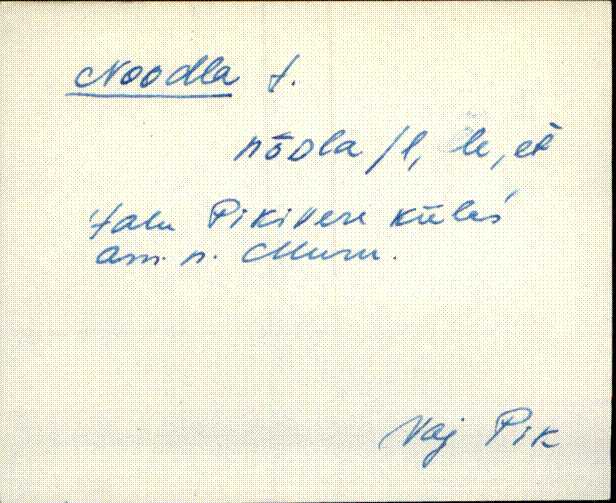 Noodla t.
nōᴅla /l, le, et̀
talu Pikivere külas
am. n. Muru.
Vaj Pik